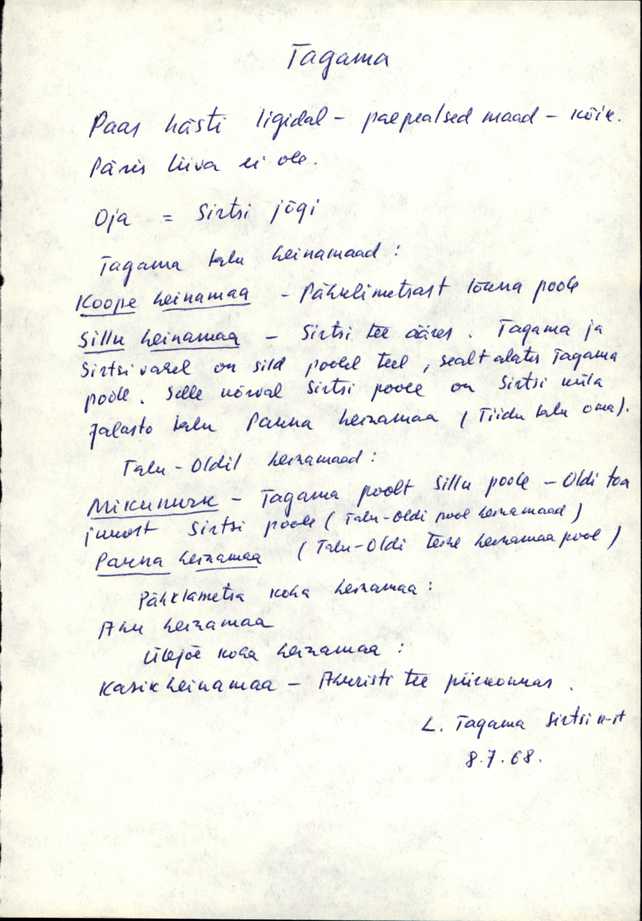 Tagama
Paas hästi ligidal - paepealsed maad - kõik.
Päris liiva ei ole.
Oja = Sirtsi jõgi
Tagama talu heinamaad:
Koope heinamaa - Pähklimetsast lõuna poole
Sillu heinamaa - Sirtsi tee ääres. Tagama ja
Sirtsi vahel on sild poolel teel, sealt alates Tagama
poole. Selle kõrval Sirtsi poole on Sirtsi küla
Jalasto talu Panna heinamaa (Tiidu talu oma).
Talu-Oldil heinamaad:
Mikunurk - Tagama poolt Sillu poole - Oldi toa
juurest Sirtsi poole (Talu-Oldi pool heinamaad)
Panna heinamaa (Talu-Oldi teine heinamaa pool)
Pähklametsa koha heinamaa:
Ahu heinamaa
Ülejõe koha heinamaa:
Kasikheinamaa - Ahuristi tee piirkonnas.
L. Tagama Sirtsi k-st
8.7.68.